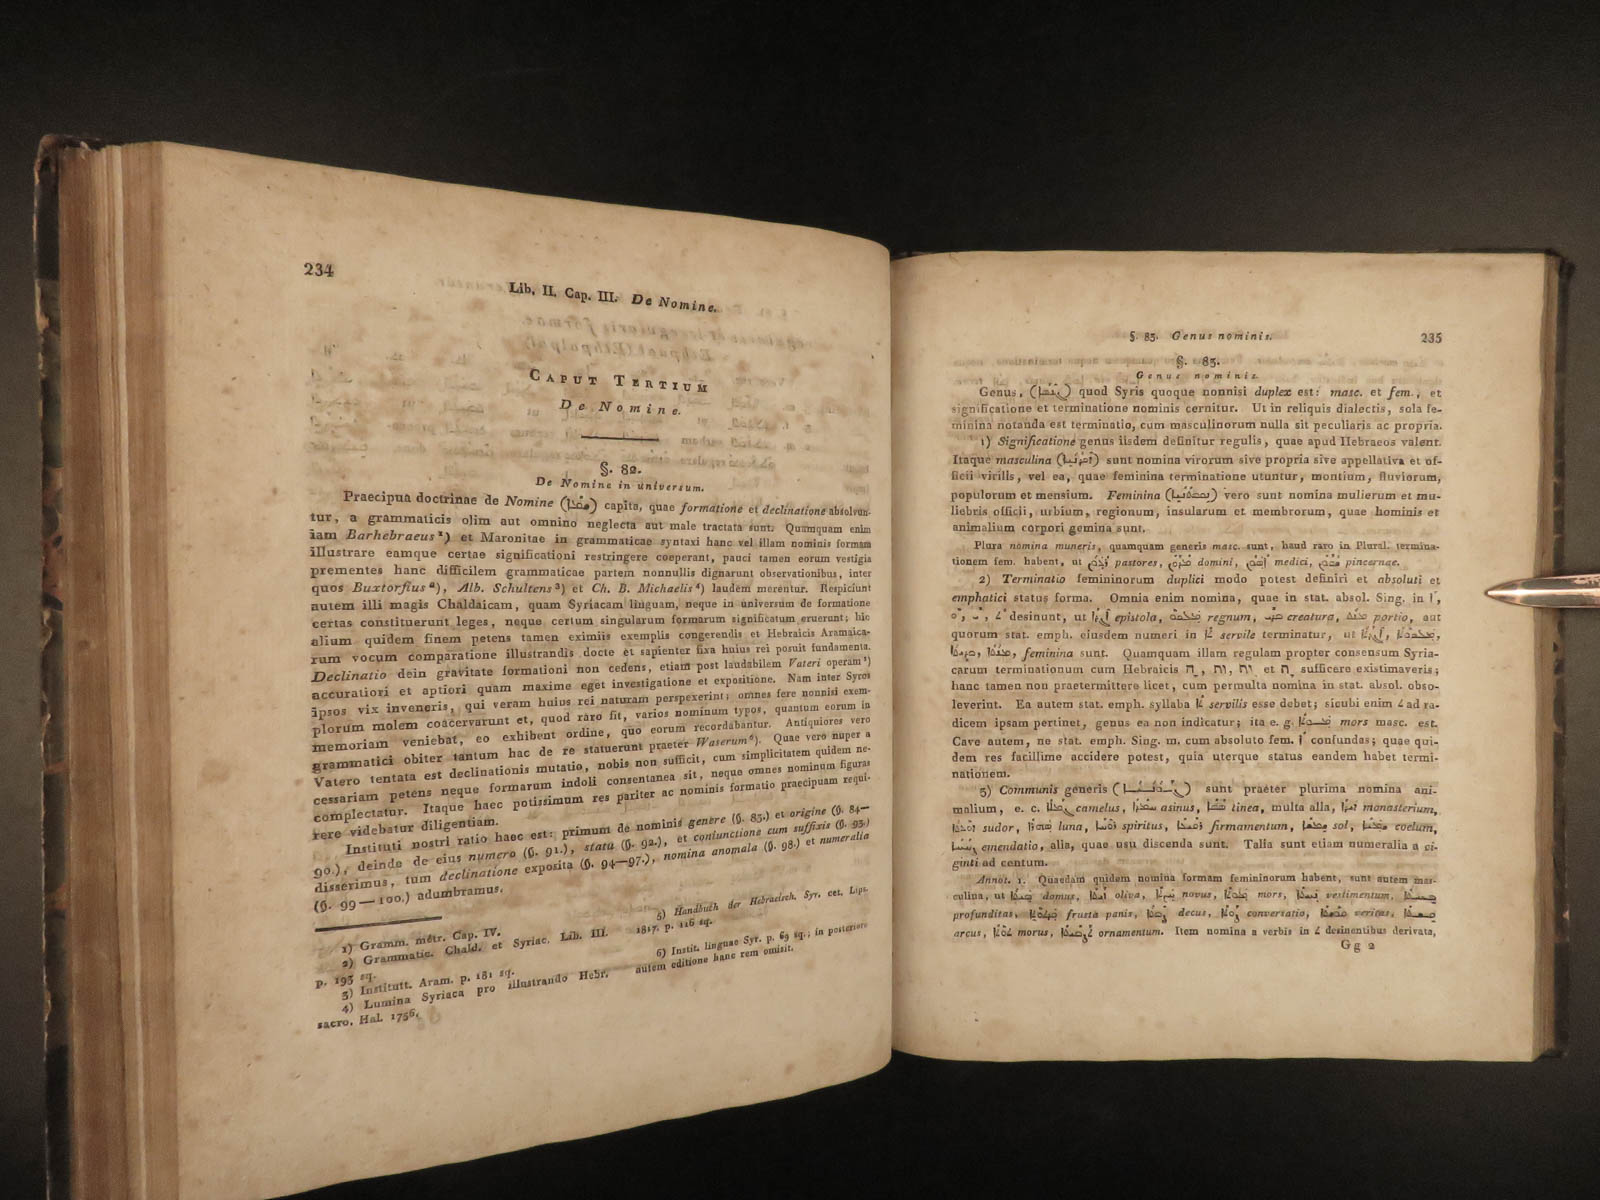 234
Lib. II. Cap. III. De Nomine.
CAPUT TERTIUM
De Nomine.
§. 82.
De Nomine in universum.
Praecipua doctrinae de Nomine ( ) capita, quae formatione et declinatione absolvun-
tur, a grammaticis olim aut omnino neglecta aut male tractata sunt. Quamquam enim
iam Barhebraeus¹) et Maronitae in grammaticae syntaxi hanc vel illam nominis formam
illustrare eamque certae significationi restringere coeperant, pauci tamen eorum vestigia
prementes hanc difficilem grammaticae partem nonnullis dignarunt observationibus, inter
quos Buxtorfius²), Alb. Schultens³) et Ch. B. Michaelis⁴) laudem merentur. Respiciunt
autem illi magis Chaldaicam, quam Syriacam linguam, neque in universum de formatione
certas constituerunt leges, neque certum singularum formarum significatum eruerunt; hic
alium quidem finem petens tamen eximiis exemplis congerendis et Hebraicis Aramaica-
rum vocum comparatione illustrandis docte et sapienter fixa huius rei posuit fundamenta.
Declinatio dein gravitate formationi non cedens, etiam post laudabilem Vateri operam⁵)
accuratiori et aptiori quam maxime eget investigatione et expositione. Nam inter Syros
ipsos vix inveneris, qui veram huius rei naturam perspexerint; omnes fere nonnisi exem-
plorum molem coacervarunt et, quod raro fit, varios nominum typos, quantum eorum in
memoriam veniebat, eo exhibent ordine, quo eorum recordabantur. Antiquiores vero
grammatici obiter tantum hac de re statuerunt praeter Waserum⁶). Quae vero nuper a
Vatero tentata est declinationis mutatio, nobis non sufficit, cum simplicitatem quidem ne-
cessariam petens neque formarum indoli consentanea sit, neque omnes nominum figuras
complectatur. Itaque haec potissimum res pariter ac nominis formatio praecipuam requi-
rere videbatur diligentiam.
Instituti nostri ratio haec est: primum de nominis genere (§. 83.) et origine (§. 84—
90.), deinde de eius numero (§. 91.), statu (§. 92.), et coniunctione cum suffixis (§. 93.)
disserimus, tum declinatione exposita (§. 94—97.), nomina anomala (§. 98.) et numeralia
(§. 99—100.) adumbramus.
1) Gramm. metr. Cap. IV.
2) Grammatic. Chald. et Syriac. Lib. III.
p. 193 sq.
3) Institutt. Aram. p. 181 sq.
4) Lumina Syriaca pro illustrando Hebr.
sacro. Hal. 1756.
5) Handbuch der Hebraeisch. Syr. cet. Lips.
1817. p. 116 sq.
6) Instit. linguae Syr. p. 69 sq.; in posteriore
autem editione hanc rem omisit.
§. 83. Genus nominis. 235
§. 83.
Genus nominis.
Genus, ( ) quod Syris quoque nonnisi duplex est: masc. et fem., et
significatione et terminatione nominis cernitur. Ut in reliquis dialectis, sola fe-
minina notanda est terminatio, cum masculinorum nulla sit peculiaris ac propria.
1) Significatione genus iisdem definitur regulis, quae apud Hebraeos valent.
Itaque masculina ( ) sunt nomina virorum sive propria sive appellativa et of-
ficii virilis, vel ea, quae feminina terminatione utuntur, montium, fluviorum,
populorum et mensium. Feminina ( ) vero sunt nomina mulierum et mu-
liebris officii, urbium, regionum, insularum et membrorum, quae hominis et
animalium corpori gemina sunt.
Plura nomina muneris, quamquam generis masc. sunt, haud raro in Plural. termina-
tionem fem. habent, ut pastores, domini, medici, pincernae.
2) Terminatio femininorum duplici modo potest definiri et absoluti et
emphatici status forma. Omnia enim nomina, quae in stat. absol. Sing. in
desinunt, ut epistola, regnum, creatura, portio, aut
quorum stat. emph. eiusdem numeri in servile terminatur, ut
feminina sunt. Quamquam illam regulam propter consensum Syria-
carum terminationum cum Hebraicis et sufficere existimaveris;
hanc tamen non praetermittere licet, cum permulta nomina in stat. absol. obso-
leverint. Ea autem stat. emph. syllaba servilis esse debet; sicubi enim ad ra-
dicem ipsam pertinet, genus ea non indicatur; ita e. g. mors masc. est.
Cave autem, ne stat. emph. Sing. m. cum absoluto fem. confundas; quae qui-
dem res facillime accidere potest, quia uterque status eandem habet termi-
nationem.
3) Communis generis ( ) sunt praeter plurima nomina ani-
malium, e. c. camelus, asinus, tinea, multa alla, monasterium,
sudor, luna, spiritus, firmamentum, sol, coelum,
emendatio, alia, quae usu discenda sunt. Talia sunt etiam numeralia a vi-
ginti ad centum.
Annot. 1. Quaedam quidem nomina formam femininorum habent, sunt autem mas-
culina, ut domus, oliva, novus, mors, vestimentum,
profunditas, frusta panis, decus, conversatio, veritas,
arcus, morus, ornamentum. Item nomina a verbis in desinentibus derivata,
Gg 2